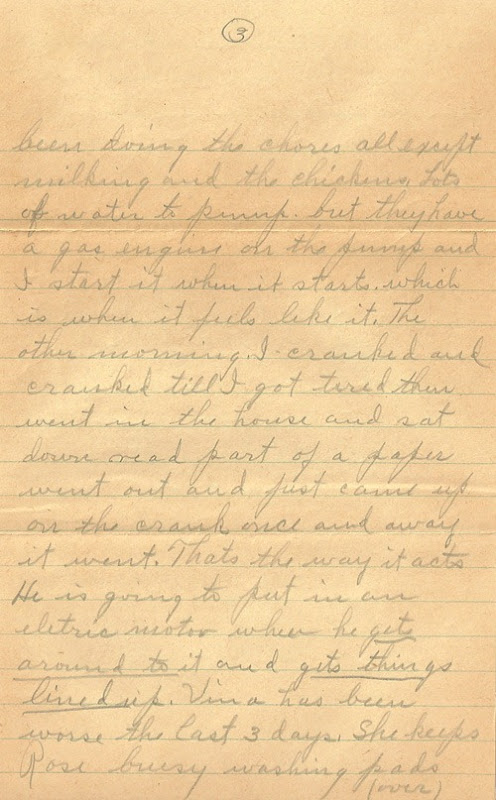 3
been doing the chores all except
milking and the chickens. Lots
of water to pump. but they have
a gas engine on the pump and
I start it when it starts. which
is when it feels like it. The
other morning. I cranked and
cranked till I got tired then
went in the house and sat
down read part of a paper
went out and just came up
on the crank once and away
it went. Thats the way it acts
He is going to put in an
eletric motor when he gets
around to it and gets things
lined up. Vina has been
worse the last 3 days. She keeps
Rose buisy washing pads
(over)